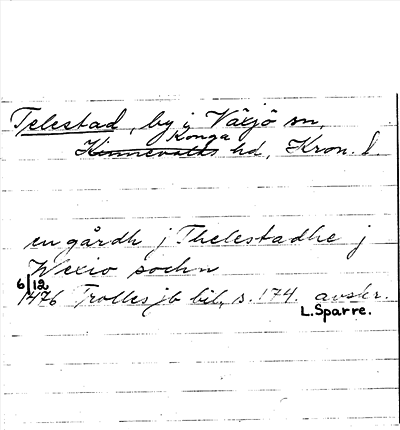 Telestad, by i Växjö sn,
Konga
Kinnevalds hd, Kron. l.
en gårdh j Thelestadhe j
Wexio sochn
6/12
1476 Trolles jb bil, s. 174. avskr.
L. Sparre.